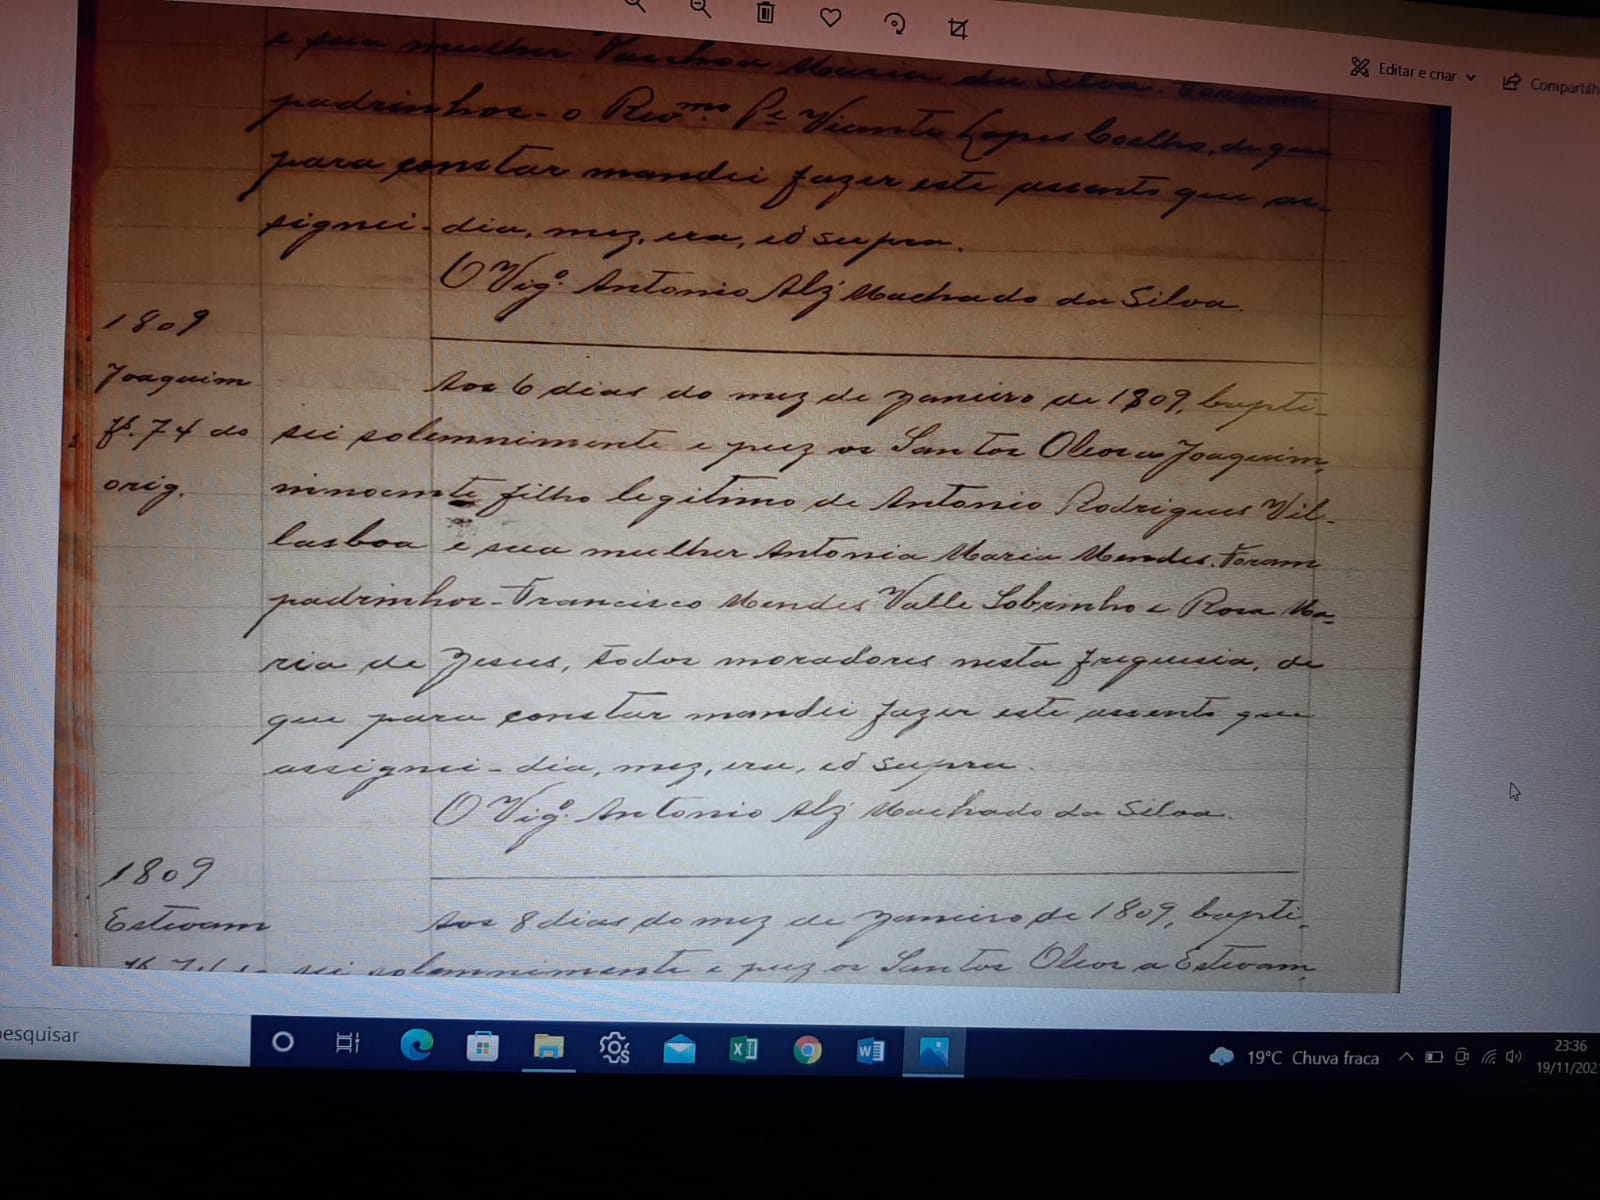 Editar e criar
Compartilh
e sua mulher Paschoa Maria da Silva. Foram
padrinhos - o Revmo. Pe Vicente Lopes Coelho, de que
para constar mandei fazer este assento que as-
signei - dia, mez, era, ut supra.
O Vigo. Antonio Alz Machado da Silva.
1809
Joaquim
fs. 74 do
orig.
Aos 6 dias do mez de Janeiro de 1809, bapti-
sei solemnimente e puz os Santos Oleos a Joaquim,
innocente filho legitimo de Antonio Rodrigues Vil-
lasboa e sua mulher Antonia Maria Mendes. Foram
padrinhos - Francisco Mendes Valle Sobrinho e Rosa Ma-
ria de Jesus, todos moradores nesta freguesia, de
que para constar mandei fazer este assento que
assignei - dia, mez, era, ut supra.
O Vigo. Antonio Alz Machado da Silva.
1809
Estevam
Aos 8 dias do mez de Janeiro de 1809, bapti-
sei solemnimente e puz os Santos Oleos a Estevam,
pesquisar
19°C Chuva fraca
23:36
19/11/202